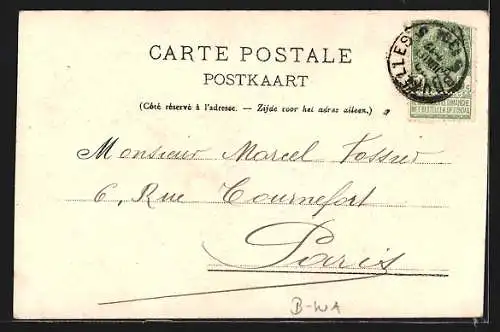 CARTE POSTALE
POSTKAART
(Côté réservé à l'adresse. — Zijde voor het adres alleen.)
Monsieur Marcel Tossier
6, Rue Tournefort
Paris
B-WA